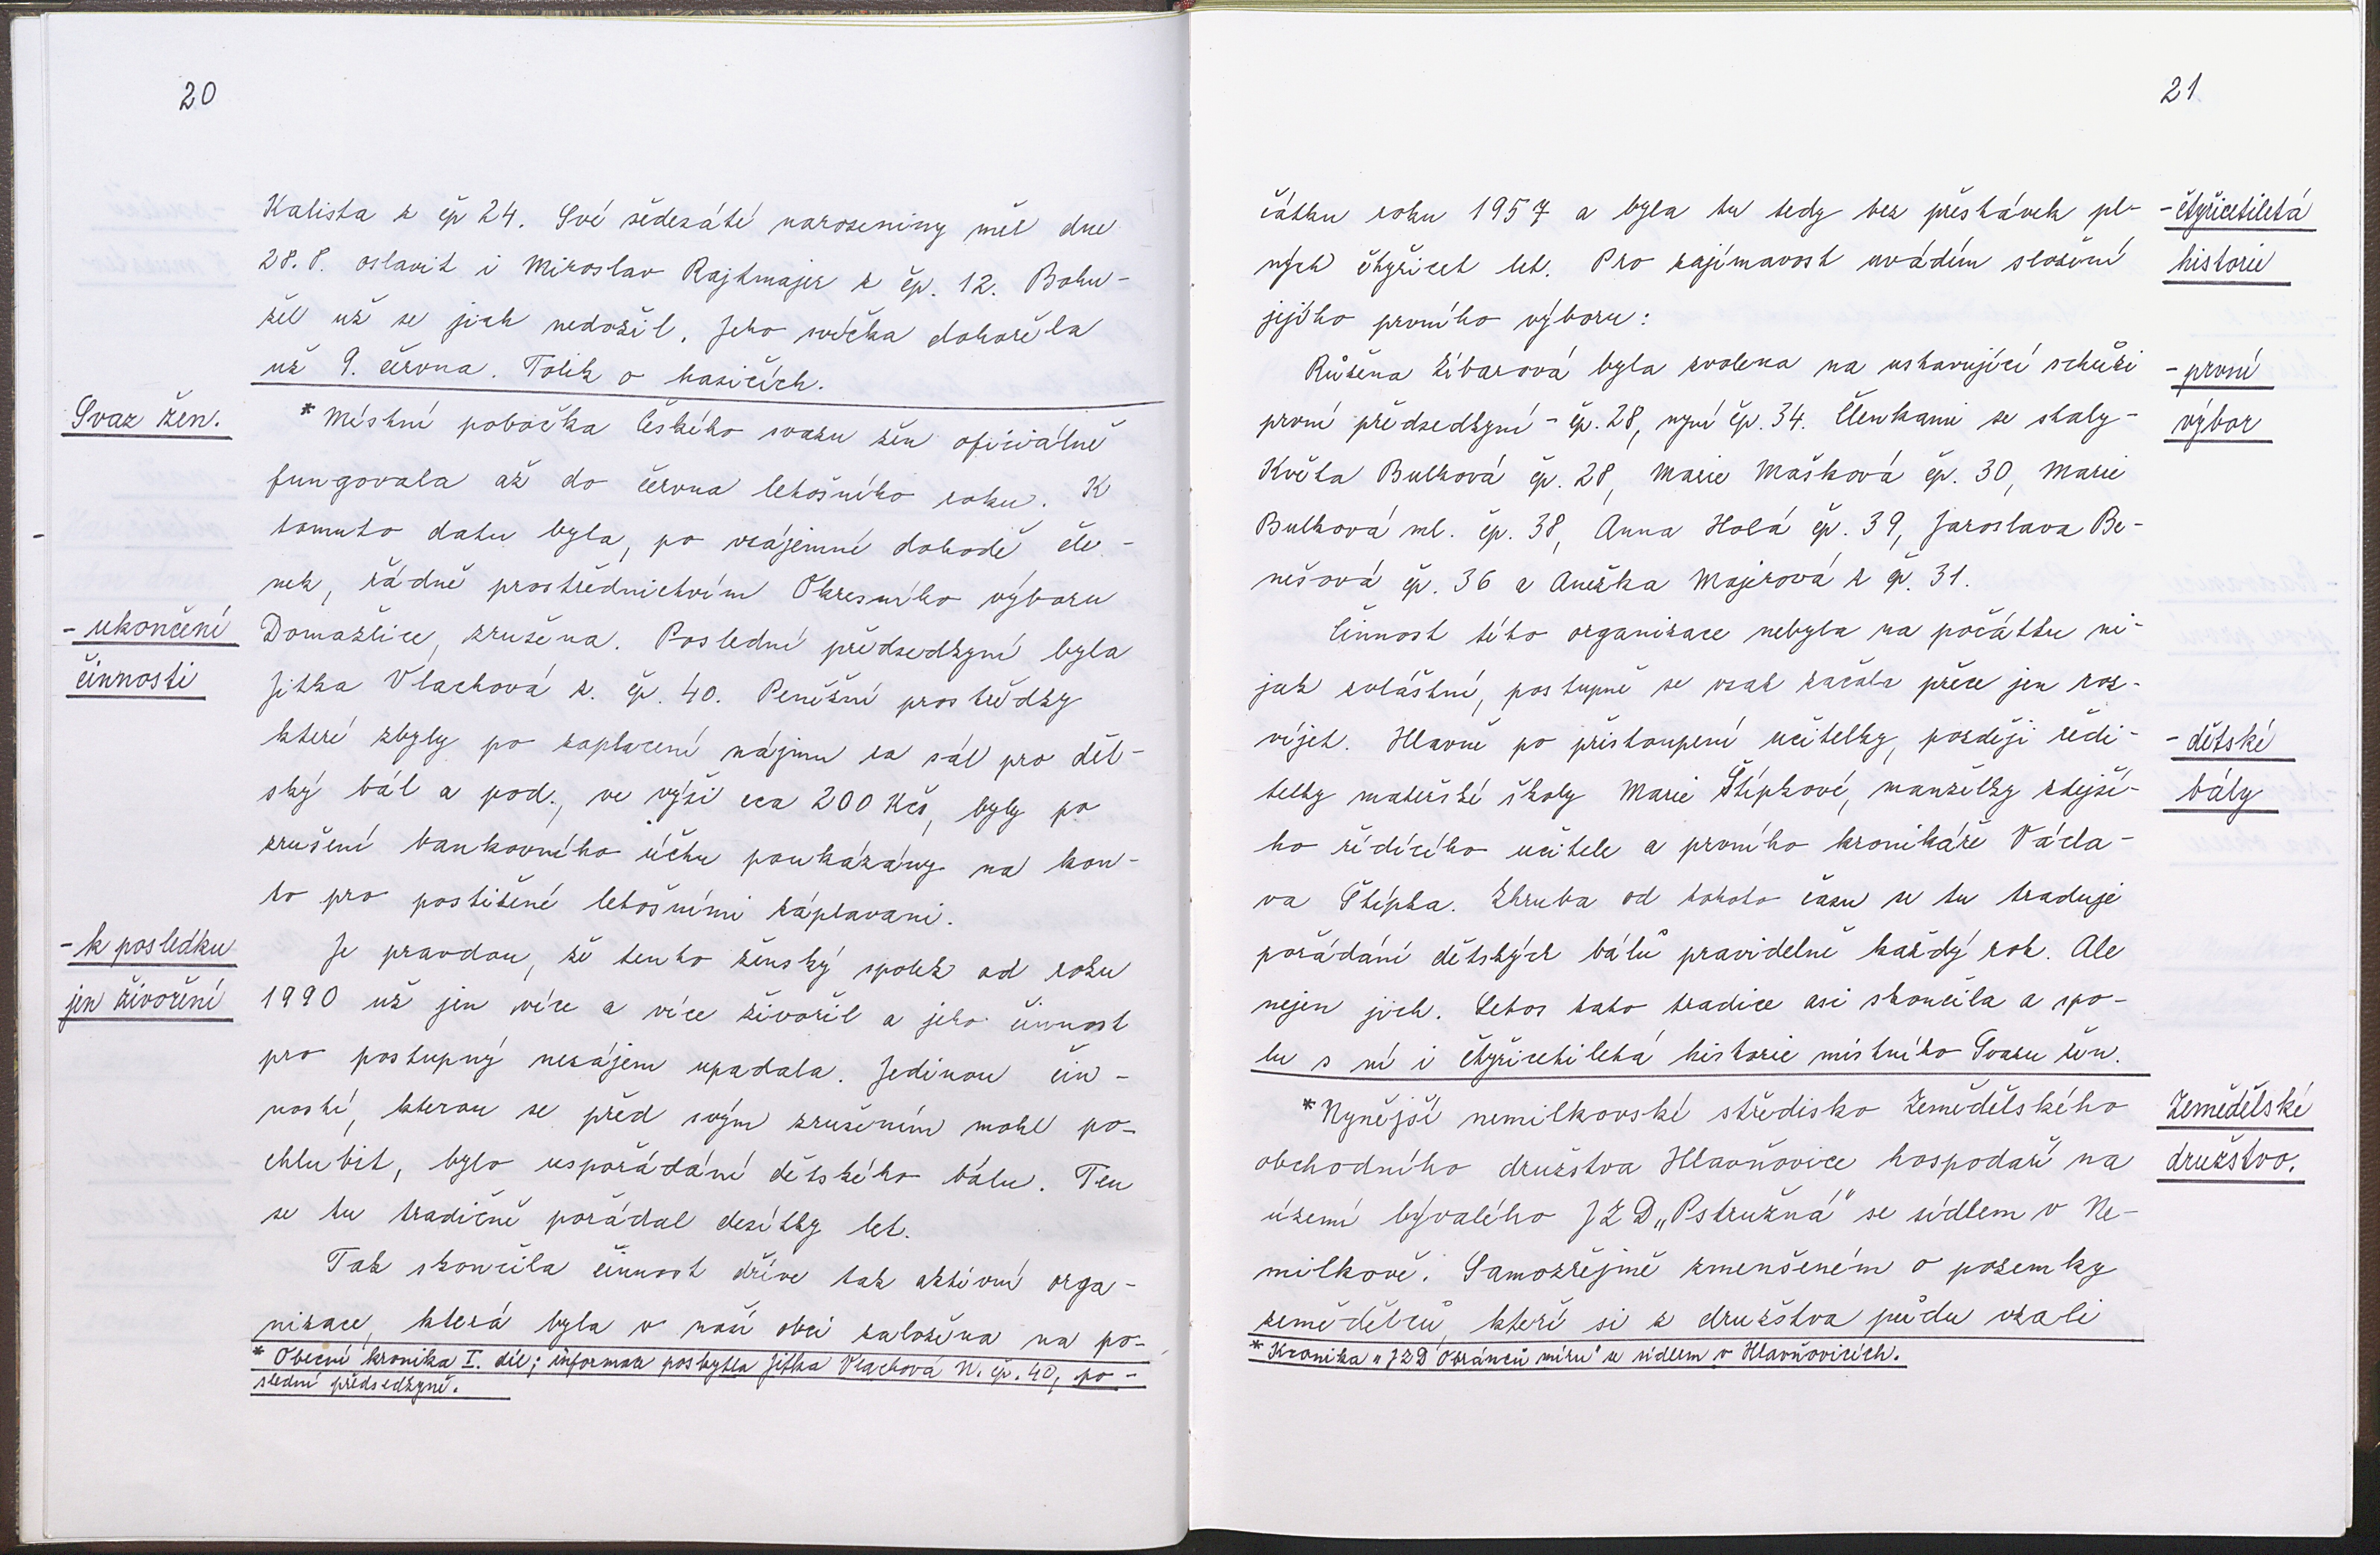 20
Kalista z čp 24. Své šedesáté narozeniny měl dne
28. 8. oslavit i Miroslav Rajtmajer z čp. 12. Bohu-
žel už se jich nedožil. Jeho svíčka dohořela
už 9. června. Tolik o hasičích.
Svaz žen.
* Místní pobočka Českého svazu žen oficiálně
fungovala až do června letošního roku. K
tomuto datu byla, po vzájemné dohodě čle-
nek, řádně prostřednictvím Okresního výboru
- ukončení
činnosti
Domažlice, zrušena. Poslední předsedkyní byla
Jitka Vlachová z. čp. 40. Peněžní prostředky
které zbyly po zaplacení nájmu za sál pro dět-
ský bál a pod., ve výši cca 200 Kčs, byly po
zrušení bankovního účtu poukázány na kon-
to pro postižené letošními záplavami.
- k posledku
jen živoření
Je pravdou, že tento ženský spolek od roku
1990 už jen více a více živořil a jeho činnost
pro postupný nezájem upadala. Jedinou čin-
ností, kterou se před svým zrušením mohl po-
chlubit, bylo uspořádání dětského bálu. Ten
se tu tradičně pořádal desítky let.
Tak skončila činnost dříve tak aktivní orga-
nizace, která byla v naší obci založena na po-
* Obecní kronika I. díl; informace poskytla Jitka Vlachová N. čp. 40, po-
slední předsedkyně.
21
čátku roku 1957 a byla tu tedy bez přestávek pl-
ných čtyřicet let. Pro zajímavost uvádím složení
jejího prvního výboru:
- čtyřicetiletá
historie
Růžena Žibarová byla zvolena na ustavující schůzi
první předsedkyní - čp. 28, nyní čp. 34. Členkami se staly-
Květa Bulková čp. 28, Marie Mašková čp. 30, Marie
Bulková ml. čp. 38, Anna Holá čp. 39, Jaroslava Be-
nešová čp. 36 a Anežka Majerová z čp. 31.
- první
výbor
Činnost této organizace nebyla na počátku ni-
jak zvláštní, postupně se však začala přece jen roz-
víjet. Hlavně po přistoupení učitelky, později ředi-
telky mateřské školy Marie Štípkové, manželky zdejší-
ho řídícího učitele a prvního kronikáře Václa-
va Štípka. Zhruba od tohoto času se tu traduje
pořádání dětských bálů pravidelně každý rok. Ale
nejen jich. Letos tato tradice asi skončila a spo-
lu s ní i čtyřicetiletá historie místního Svazu žen.
- dětské
bály
* Nynější nemilkovské středisko Zemědělského
obchodního družstva Hlavňovice hospodaří na
území bývalého JZD „Pstružná" se sídlem v Ne-
milkově. Samozřejmě zmenšeném o pozemky
zemědělců, kteří si z družstva půdu vzali
Zemědělské
družstvo.
* Kronika „JZD Obránců míru" se sídlem v Hlavňovicích.